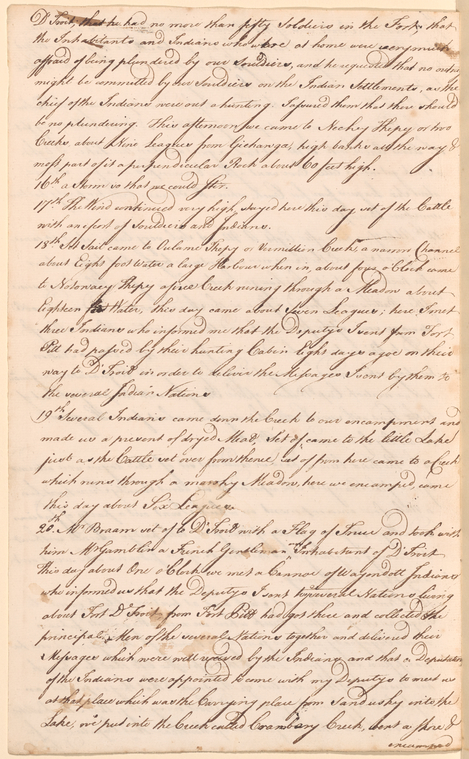 D'Troit, that he had no more than fifty Soldiers in the Fort, that
the Inhabitants and Indians who were at home were very much
afraid of being plundered by our Souldiers, and he requested that no
might be committed by our Souldiers on the Indian Settlements, as the
chief of the Indians were out a hunting. I assured them that there should
be no plundering. This afternoon we came to Nechey Thepy or two
Creeks about Nine Leagues from Gichanga, high banks all the way &
most part of it a perpendicular Rock about 60 feet high.
16th a Storm so that we could Stir.
17th The Wind continued very high, stayed here this day set of the Cattle
with an escort of Souldiers and Indians.
18th Set Sail came to Oulame Thepy or Vermillion Creek, a narrow Channel
about Eight foot Water a large Harbour when in, about four o'Clock came
to Notowacy Thepy a fine Creek runing through a Meadow about
Eighteen foot Water, this day came about Seven Leagues; here I met
three Indians who informed me that the Deputys I sent from Fort
Pitt had passed by their hunting Cabin Eight days agoe on their
way to D'Troit in order to deliver the Messages I sent by them to
the several Indian Nations
19th Several Indians came down the Creek to our encampment and
made us a present of dryed Meat, Set of came to the little Lake
just as the Cattle set over from thence set of from here came to a Creek
which runs through a marshy Meadow, here we encamped, came
this day about Six Leagues.
20th Mr. Braam set of to D'Troit with a Flag of Truce and took with
him Mr Gamblin a French Gentleman an Inhabitant of D'Troit
this day about One o'Clock we met a Cannoe of Wayondott Indians
who informed us that the Deputys I sent to ye several Nations living
about Fort D'Troit, from Fort Pitt had got there and collected the
principal Men of the several Nations together and delivered their
Messages which were well received by the Indians, and that a Deputation
of the Indians were appointed to come with my Deputys to meet us
at that place which was the Carrying place from Sandusky into the
Lake, we put into the Creek called Cranberry Creek, went a shore &
encamped